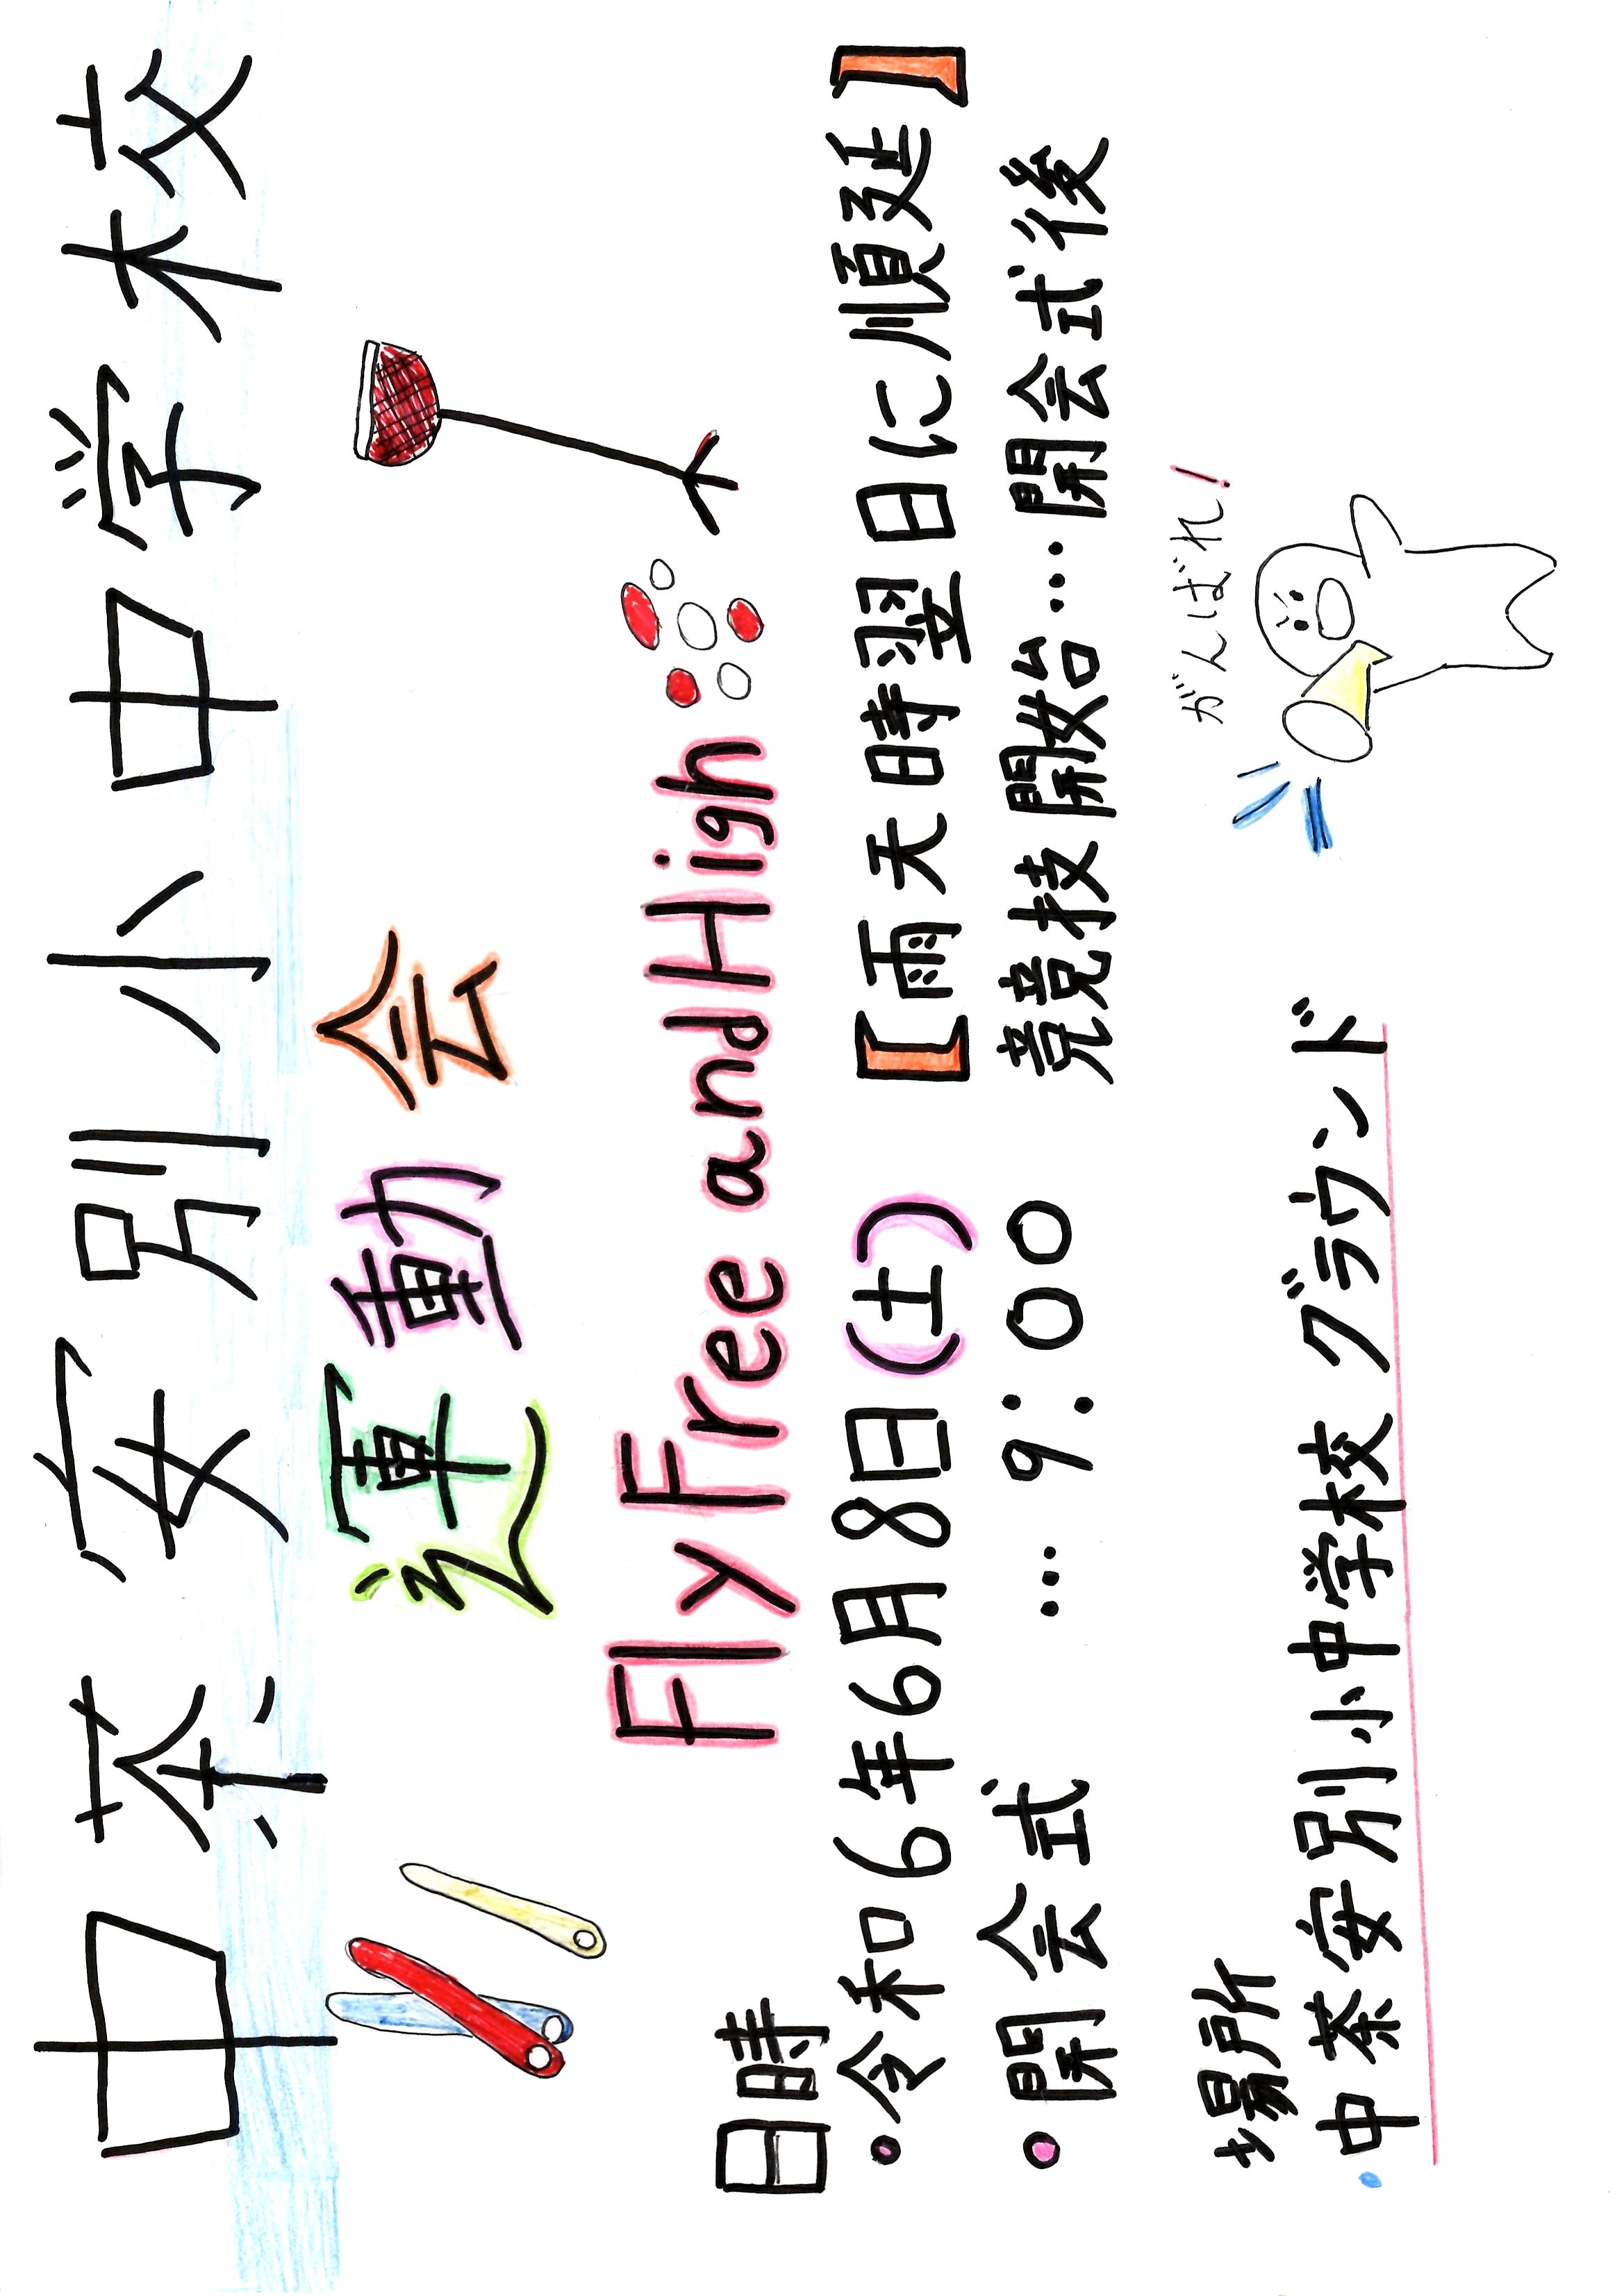 中茶安別小中学校
運動会
Fly Free and High
日時
・令和6年6月8日(土)【雨天時翌日に順延】
・開会式 … 9:00 競技開始…開会式後
がんばれ!
場所
・中茶安別小中学校グラウンド